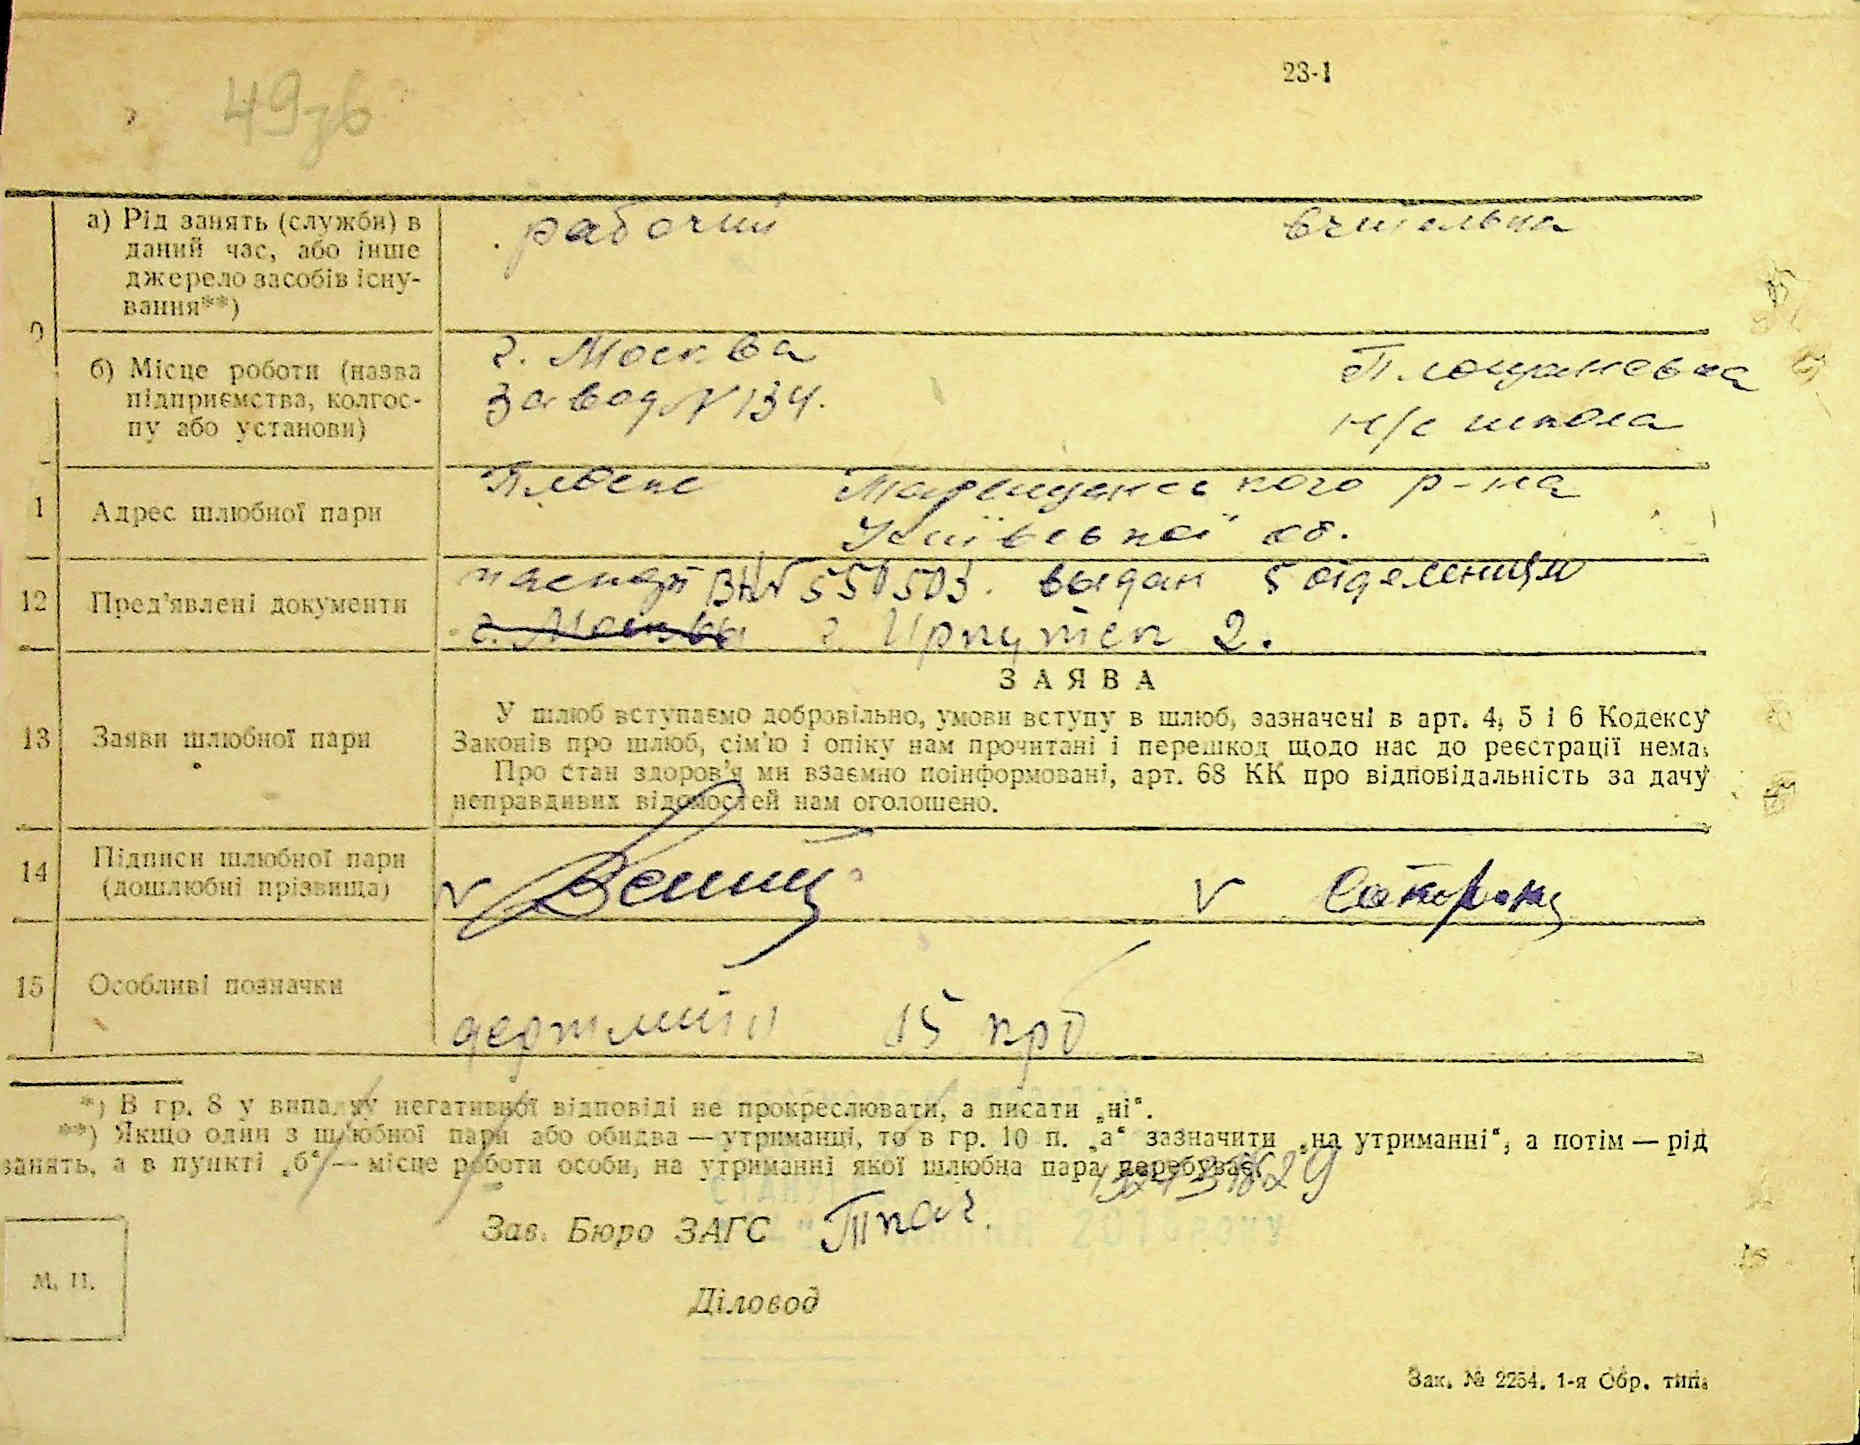 49зв
23-1
а) Рід занять (служби) в
даний час, або інше
джерело засобів існу-
вання**)
рабочий
вчителька
б) Місце роботи (назва
підприємства, колгос-
пу або установи)
г. Москва
завод N 134.
н/с школа
1 Адрес шлюбної пари
р-на
Київської об.
12 Пред'явлені документи
паспорт N 550503. выдан 5 отделением
г. Москвы г. Иркутск 2.
ЗАЯВА
13 Заяви шлюбної пари
У шлюб вступаємо добровільно, умови вступу в шлюб, зазначені в арт. 4, 5 і 6 Кодексу
Законів про шлюб, сім'ю і опіку нам прочитані і перешкод щодо нас до реєстрації нема.
Про стан здоров'я ми взаємно поінформовані, арт. 68 КК про відповідальність за дачу
неправдивих відомостей нам оголошено.
14 Підписи шлюбної пари
(дошлюбні прізвища)
V
V
15 Особливі позначки
15 крб
*) В гр. 8 у випадку негативної відповіді не прокреслювати, а писати „ні“.
**) Якщо один з шлюбної пари або обидва — утриманці, то в гр. 10 п. „а“ зазначити „на утриманні“, а потім — рід
занять, а в пункті „б“ — місце роботи особи, на утриманні якої шлюбна пара перебуває.
Зав. Бюро ЗАГС Ткач.
М. П.
Діловод
Зак. № 2254. 1-я Обр. тип.